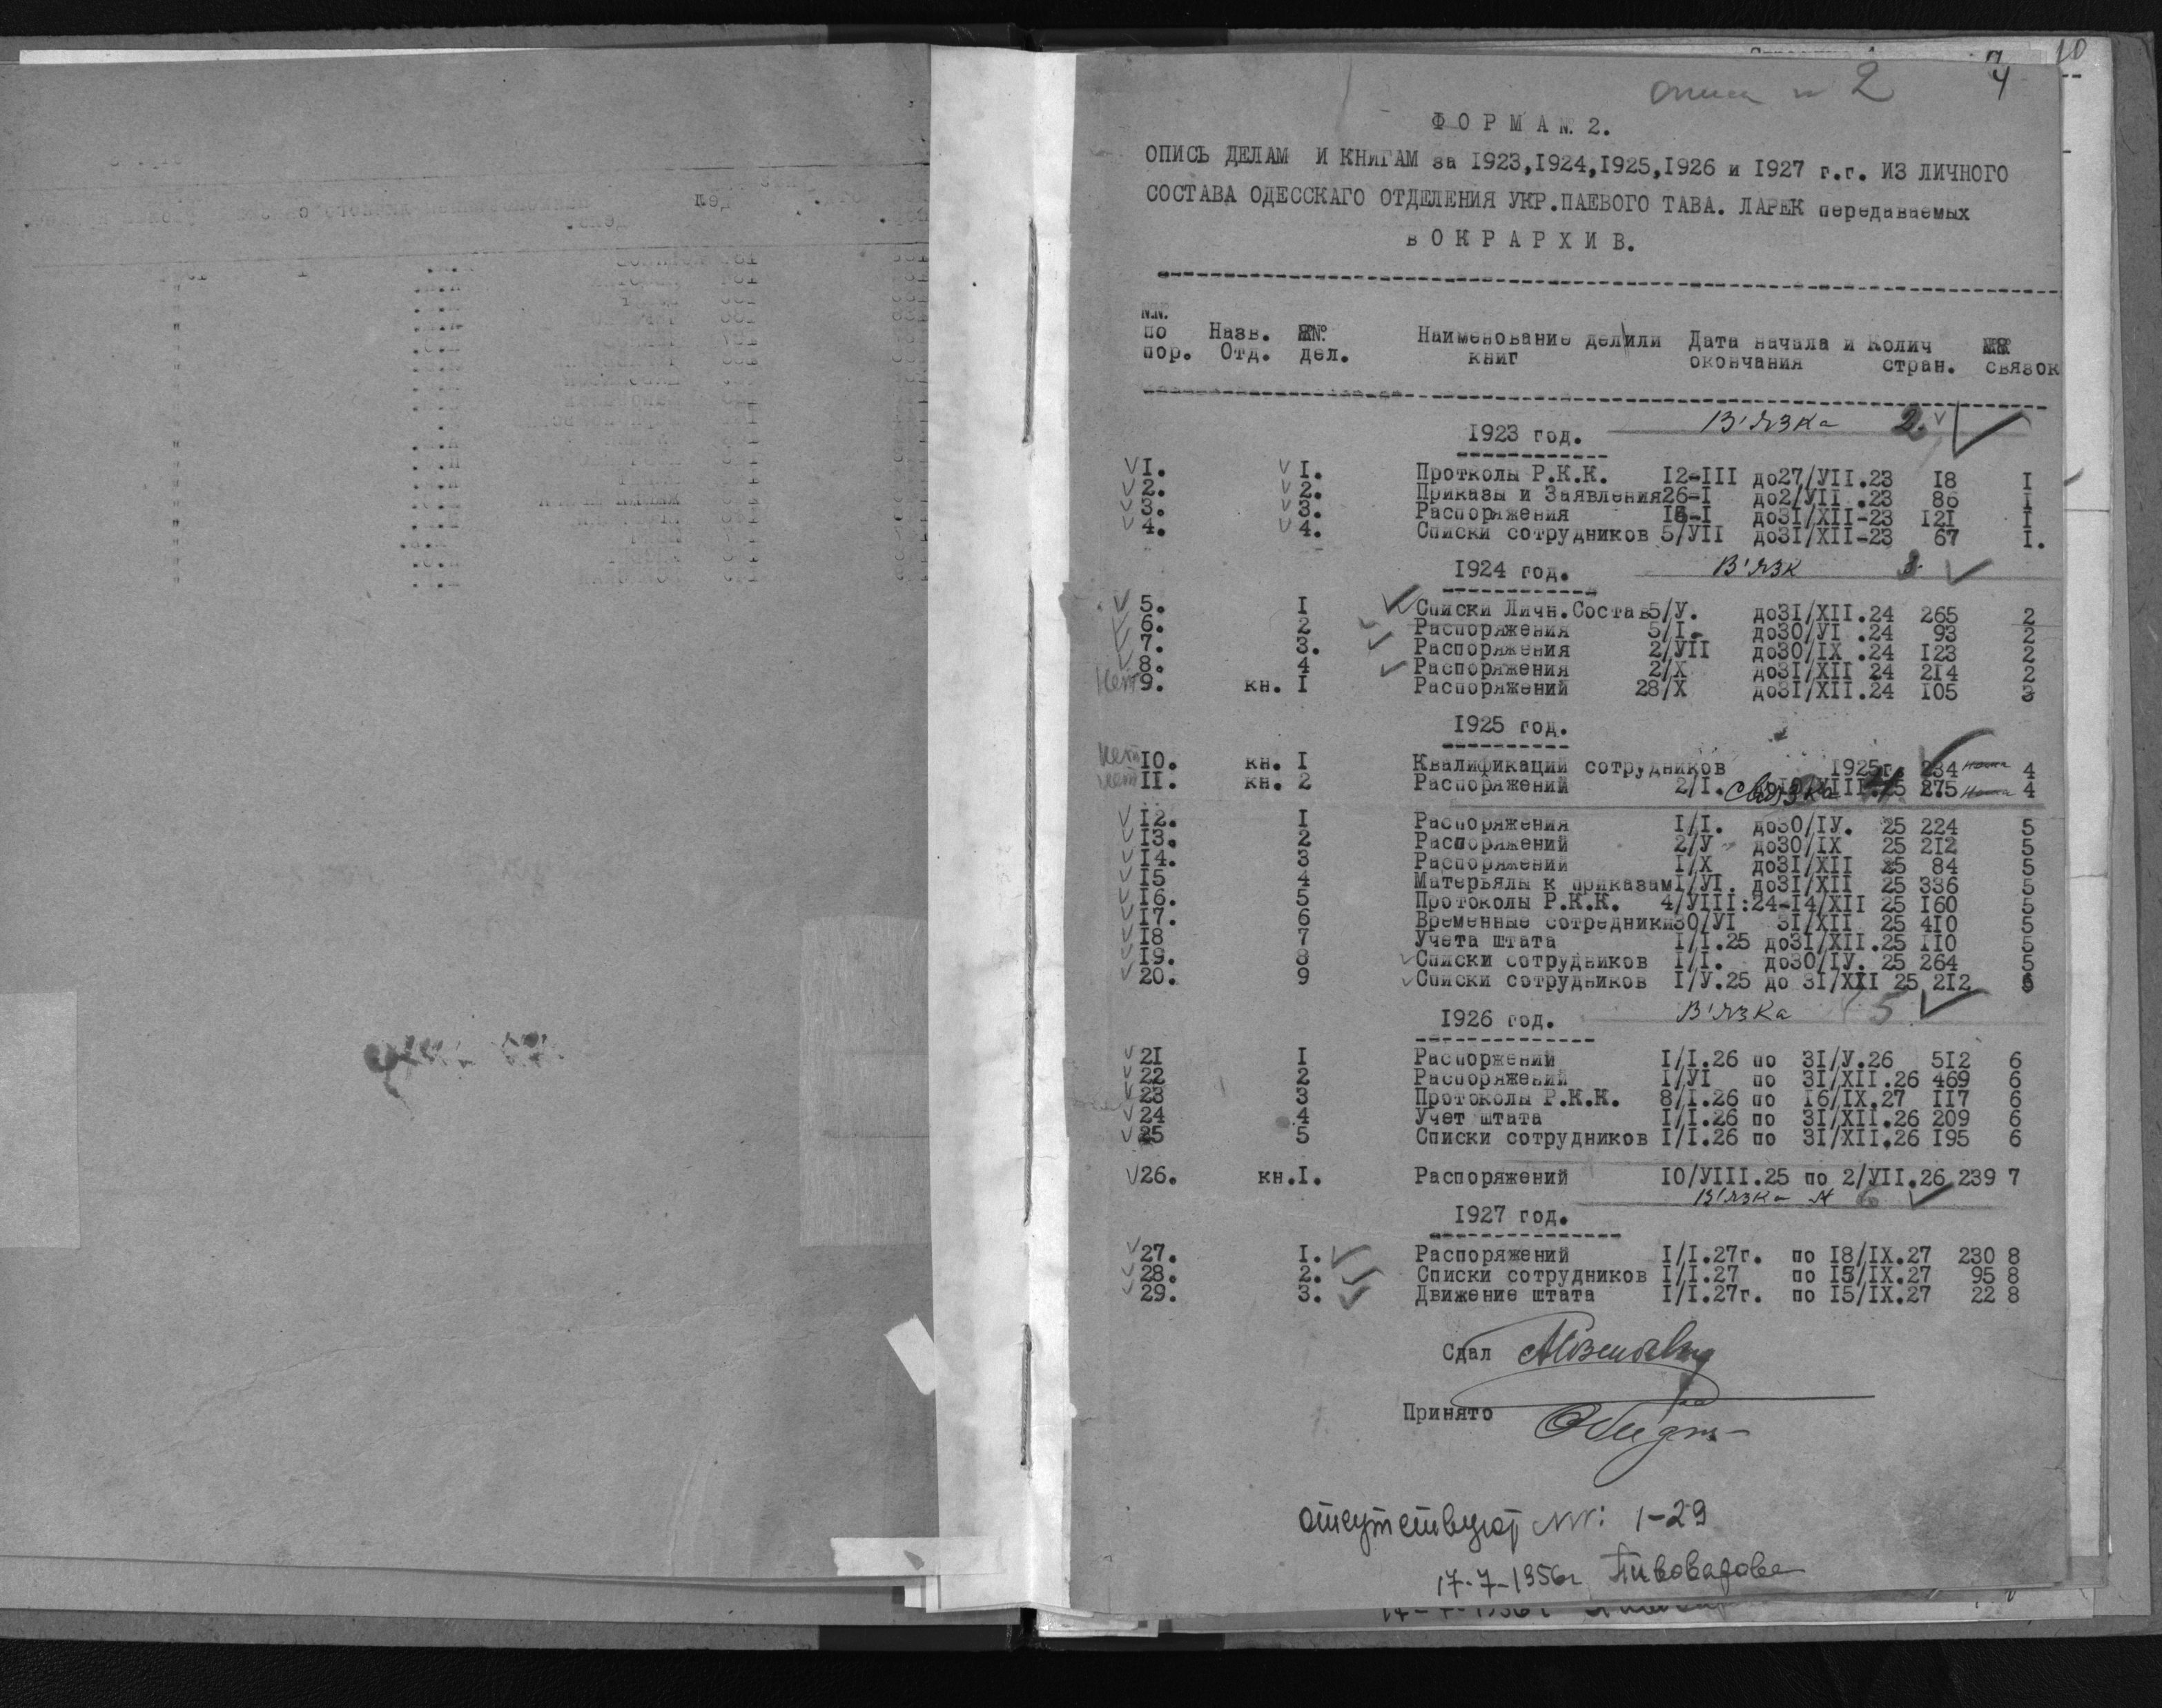 опись № 2
4
10
ФОРМА №. 2.
ОПИСЬ ДЕЛАМ И КНИГАМ за I923,I924,I925,I926 и I927 г.г. ИЗ ЛИЧНОГО
СОСТАВА ОДЕССКАГО ОТДЕЛЕНИЯ УКР.ПАЕВОГО ТАВА. ЛАРЕК передаваемых
в ОКРАРХИВ.
№№.
по Назв. №№. Наименование дел или Дата начала и Колич №№
пор. Отд. дел. книг окончания стран. связок
I923 год. В'язка 2.
I. I. Протколы Р.К.К. I2-III до27/УII.23 I8 I
2. 2. Приказы и Заявления26-I до2/УII .23 86 I
3. 3. Распоряжения I5-I до3I/XII-23 I2I I
4. 4. Списки сотрудников 5/УII до3I/XII-23 67 I.
I924 год. В'язк 3.
5. I Списки Личн.Состав5/У. до3I/XII.24 265 2
6. 2 Распоряжения 5/I. до30/УI .24 93 2
7. 3. Распоряжения 2/УII до30/IX .24 I23 2
8. 4 Распоряжения 2/X до3I/XII 24 2I4 2
Нет 9. кн. I Распоряжений 28/X до3I/XII.24 I05 3
I925 год.
Нет I0. кн. I Квалификаций сотрудников I925г. 234 4
нет II. кн. 2 Распоряжений 2/I. 275 4
Связка 4
I2. I Распоряжения I/I. до30/IУ. 25 224 5
I3. 2 Распоряжений 2/У до30/IX 25 2I2 5
I4. 3 Распоряжении I/X до3I/XII 25 84 5
I5 4 Матерьялы к приказамI/УI. до3I/XII 25 336 5
I6. 5 Протоколы Р.К.К. 4/УIII:24-I4/XII 25 I60 5
I7. 6 Временные сотредники30/УI 3I/XII 25 4I0 5
I8 7 Учета штата I/I.25 до3I/XII.25 II0 5
I9. 8 Списки сотрудников I/I. до30/IУ. 25 264 5
20. 9 Списки сотрудников I/У.25 до 3I/XII 25 2I2 5
I926 год. В'язка 5
2I I Распоржений I/I.26 по 3I/У.26 5I2 6
22 2 Распоряжений I/УI по 3I/XII.26 469 6
23 3 Протоколы Р.К.К. 8/I.26 по I6/IX.27 II7 6
24 4 Учет штата I/I.26 по 3I/XII.26 209 6
25 5 Списки сотрудников I/I.26 по 3I/XII.26 I95 6
26. кн.I. Распоряжений I0/УIII.25 по 2/УII.26 239 7
В'язка № 6
I927 год.
27. I. Распоряжений I/I.27г. по I8/IX.27 230 8
28. 2. Списки сотрудников I/I.27 по I5/IX.27 95 8
29. 3. Движение штата I/I.27г. по I5/IX.27 22 8
Сдал
Принято
отсутствуют №№: 1-29
17-7-1956г Пивоварова